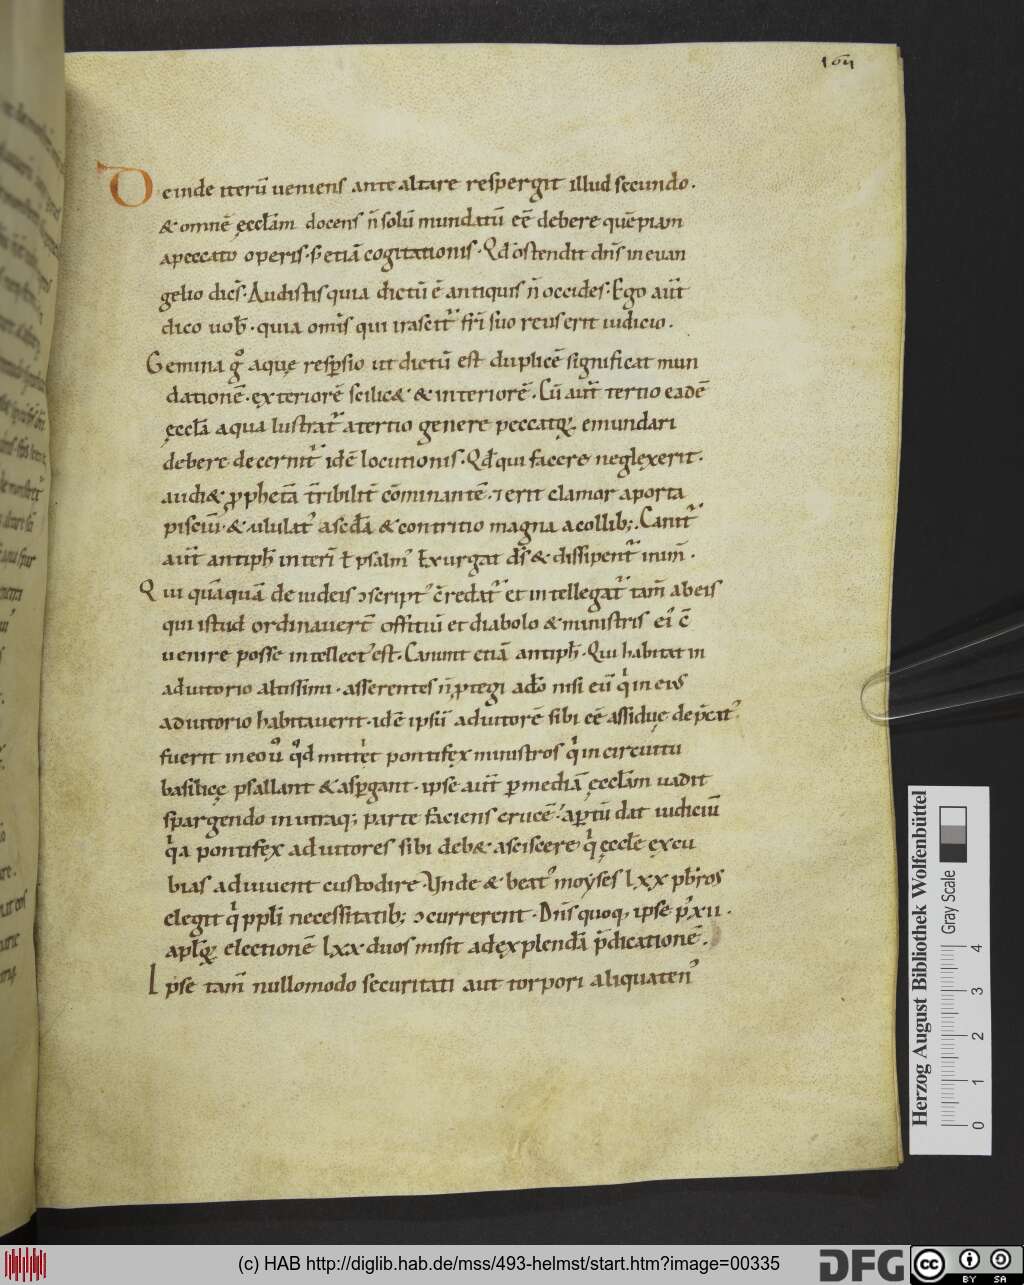 164
Deinde iterū ueniens ante altare respergit illud secundo.
& omnē ęccła̅m docens n̄ solū mundatū eē debere quēpiam
a peccato operis. s; etiā cogitationis. Qd̄ ostendit dn̄s in euan
gelio dicēs. Audistis quia dictū ē antiquis n̄ occides. Ego aut̄
dico uob̄. quia omīs qui irascit̄ fr̄i suo reus erit iudicio.
Gemina gͦ aquę resp̱sio ut dictū est duplicē significat mun
dationē. exteriorē scilic& & interiorē. Cū aut̄ tertio eadē
ęccła aqua lustrat̄ a tertio genere peccatoꝝ emundari
debere decernit̄ idē locutionis. Qd̄ qui facere neglexerit.
audi& ꝓph&ā t̄ribilit̄ cōminantē. ⁊ erit clamor a porta
pisciū & ululat᾽ a scd̄a & contritio magna a collib;. Canit̄
aut̄ antiph̄ interī ł psalm᾽ Exurgat ds̄ & dissipent̄ inim̄.
Qui quāquā de iudeis ɔscript᾽ c̄redat᾽ et intellegat᾽ tam̄ ab eis
qui istud ordinauer̄t offitiū et diabolo & ministris ei᾽ c̄
uenire posse intellect᾽ est. Canunt etiā antiph̄. Qui habitat in
adiutorio altissimi. asserentes n̄ ꝓtegi a dō nisi eū qͥ in eius
adiutorio habitauerit. idē ipsū adiutorē sibi eē assidue dep̄cat᾽
fuerit in eo
basilicę psallant & asp̱gant. ipse aut̄ ꝑ mediā ęccła̅m uadit
spargendo in utraq; parte faciens crucē. ap̱tū dat iudiciū
qͥa pontifex adiutores sibi deb& asciscere qͥ ęccłe excu
bias adiuuent custodire. Vnde & beat᾽ moyses lxx pb̄ros
elegit qͥ ppłi necessitatib; ɔcurrerent. Dn̄s quoq; ipse p᾽ xii.
apłoꝝ electionē lxx duos misit ad explendā p̄dicationē.
Ipse tam̄ nullomodo securitati aut torpori aliquaten᾽
Herzog August Bibliothek Wolfenbüttel
Gray Scale
0 1 2 3 4
(c) HAB http://diglib.hab.de/mss/493-helmst/start.htm?image=00335
DFG
cc BY SA